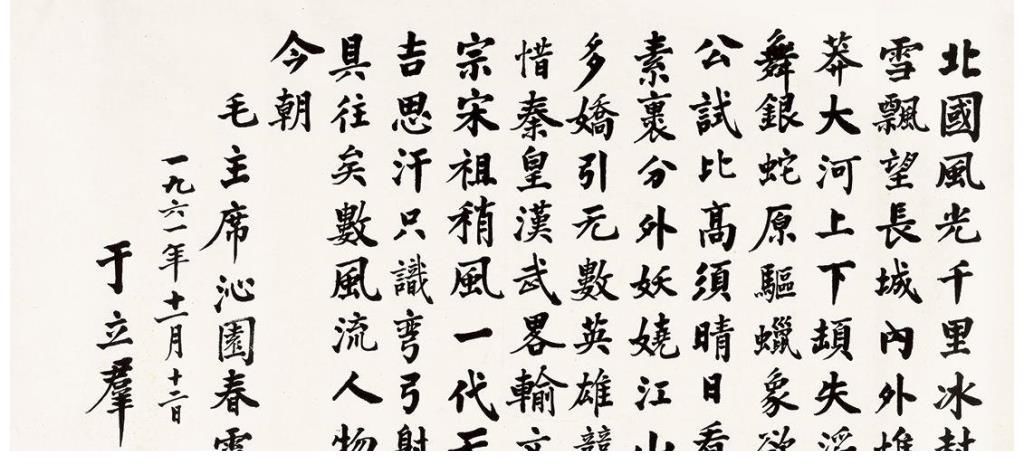 北國風光千里冰封
雪飄望長城內外惟
莽大河上下頓失滔
舞銀蛇原驅蠟象欲
公試比高須晴日看
素裹分外妖嬈江山
多嬌引无數英雄競
惜秦皇漢武畧輸文
宗宋祖稍風一代天
吉思汗只識彎弓射
具往矣數風流人物
今朝
毛主席沁園春雪
一九六一年十一月十二日
于立羣